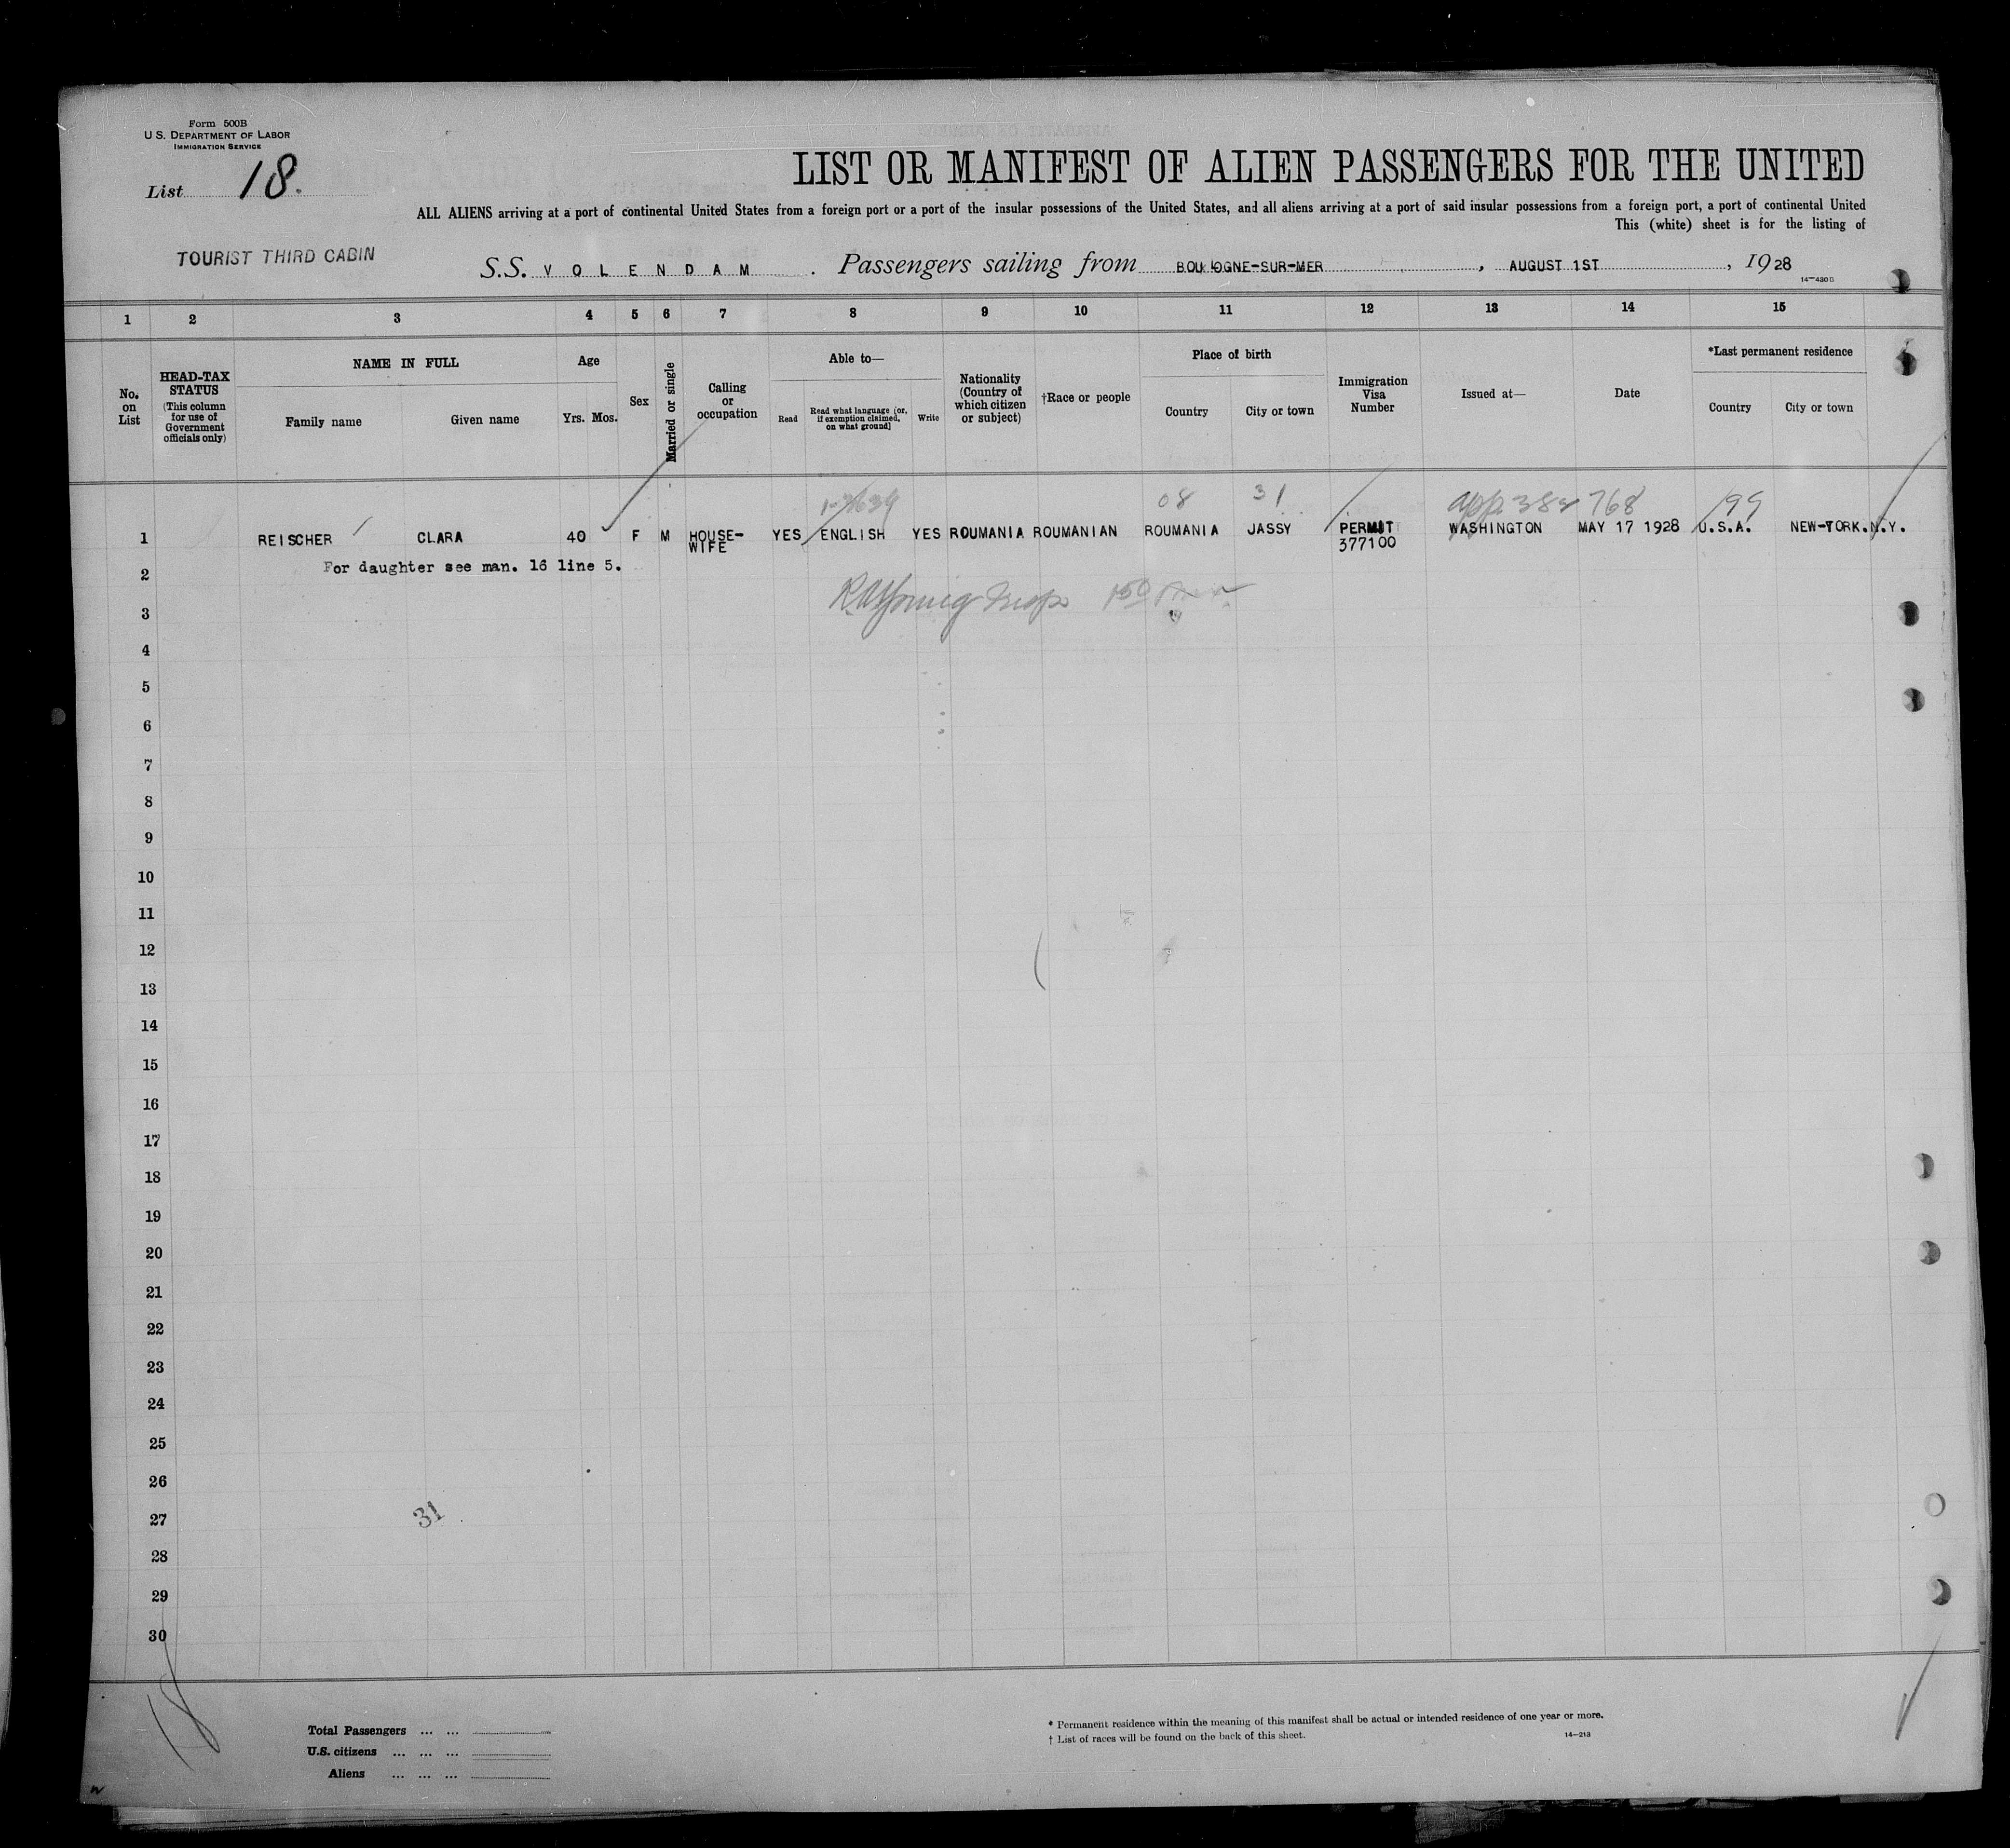 Form 500B
U.S. DEPARTMENT OF LABOR
IMMIGRATION SERVICE
List 18.
LIST OR MANIFEST OF ALIEN PASSENGERS FOR THE UNITED
ALL ALIENS arriving at a port of continental United States from a foreign port or a port of the insular possessions of the United States, and all aliens arriving at a port of said insular possessions from a foreign port, a port of continental United
This (white) sheet is for the listing of
TOURIST THIRD CABIN
S.S. VOLENDAM. Passengers sailing from BOULOGNE-SUR-MER, AUGUST 1ST, 1928
1 2 3 4 5 6 7 8 9 10 11 12 13 14 15
No. on List
HEAD-TAX STATUS (This column for use of Government officials only)
NAME IN FULL
Family name Given name
Age
Yrs. Mos.
Sex
Married or single
Calling or occupation
Able to—
Read
Read what language [or, if exemption claimed, on what ground]
Write
Nationality (Country of which citizen or subject)
†Race or people
Place of birth
Country City or town
Immigration Visa Number
Issued at—
Date
*Last permanent residence
Country City or town
08 31 768 99
1 REISCHER CLARA 40 F M HOUSE-WIFE YES ENGLISH YES ROUMANIA ROUMANIAN ROUMANIA JASSY PERMIT 377100 WASHINGTON MAY 17 1928 U.S.A. NEW-YORK.N.Y.
For daughter see man. 16 line 5.
2
3
4
5
6
7
8
9
10
11
12
13
14
15
16
17
18
19
20
21
22
23
24
25
26
27
31
28
29
30
18
Total Passengers ... ...
U.S. citizens ... ... ...
Aliens ... ... ...
* Permanent residence within the meaning of this manifest shall be actual or intended residence of one year or more.
† List of races will be found on the back of this sheet.
14—213